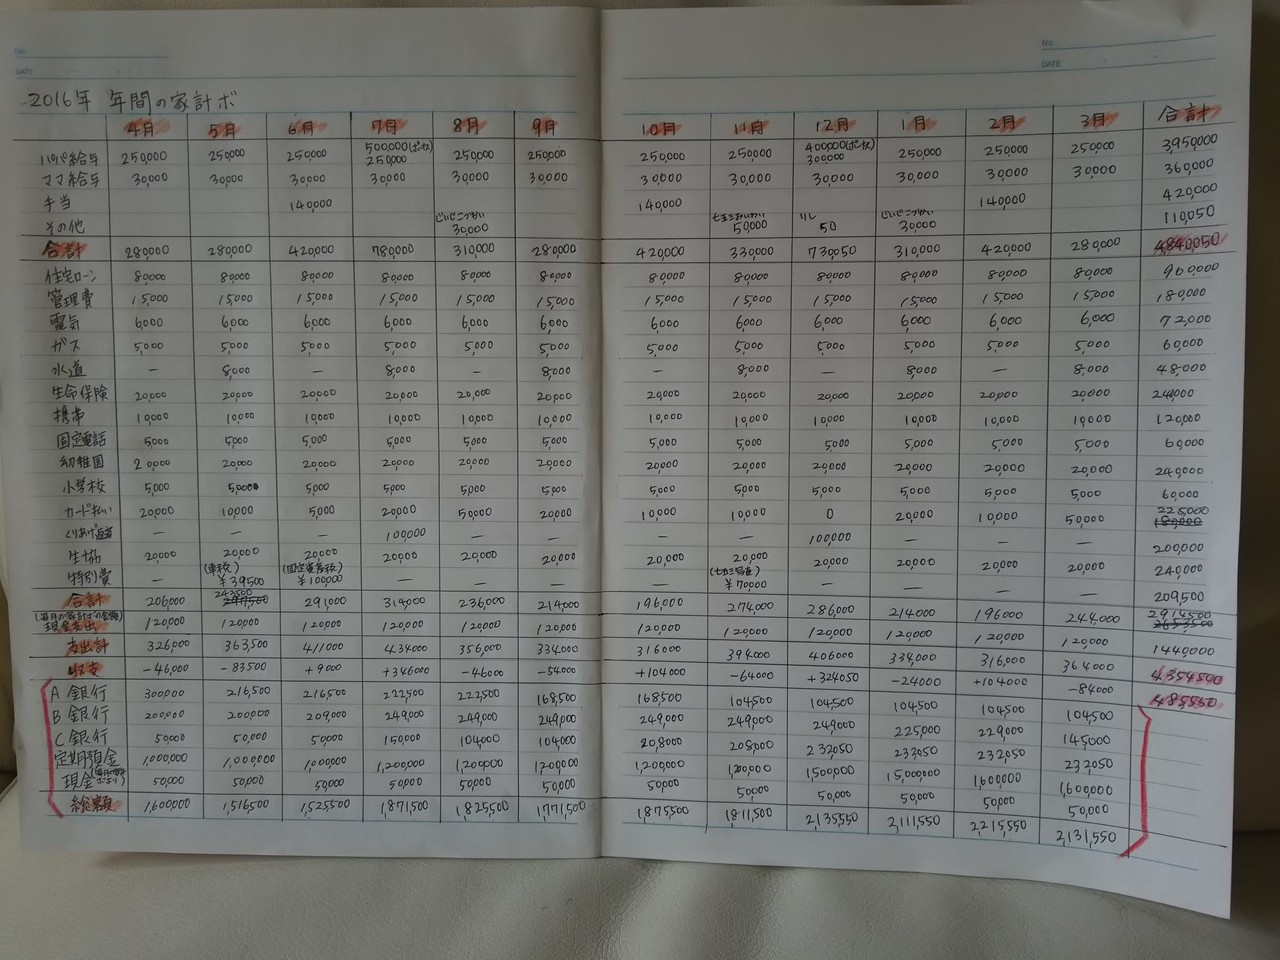 NO.
DATE
NO.
DATE
2016年 年間の家計ボ
4月 5月 6月 7月 8月 9月 10月 11月 12月 1月 2月 3月 合計
500,000(ボーナス) 400,000(ボーナス)
パパ給与 250,000 250,000 250,000 250,000 250,000 250,000 250,000 250,000 300,000 250,000 250,000 250,000 3,950,000
ママ給与 30,000 30,000 30,000 30,000 30,000 30,000 30,000 30,000 30,000 30,000 30,000 30,000 360,000
手当 140,000 140,000 140,000 420,000
じいじこづかい 七五三おいわい りし じいじこづかい
その他 30,000 50,000 50 30,000 110,050
合計 280,000 280,000 420,000 780,000 310,000 280,000 420,000 330,000 730,050 310,000 420,000 280,000 4,840,050
住宅ローン 80,000 80,000 80,000 80,000 80,000 80,000 80,000 80,000 80,000 80,000 80,000 80,000 960,000
管理費 15,000 15,000 15,000 15,000 15,000 15,000 15,000 15,000 15,000 15,000 15,000 15,000 180,000
電気 6,000 6,000 6,000 6,000 6,000 6,000 6,000 6,000 6,000 6,000 6,000 6,000 72,000
ガス 5,000 5,000 5,000 5,000 5,000 5,000 5,000 5,000 5,000 5,000 5,000 5,000 60,000
水道 — 8,000 — 8,000 — 8,000 — 8,000 — 8,000 — 8,000 48,000
生命保険 20,000 20,000 20,000 20,000 20,000 20,000 20,000 20,000 20,000 20,000 20,000 20,000 240,000
携帯 10,000 10,000 10,000 10,000 10,000 10,000 10,000 10,000 10,000 10,000 10,000 10,000 120,000
固定電話 5,000 5,000 5,000 5,000 5,000 5,000 5,000 5,000 5,000 5,000 5,000 5,000 60,000
幼稚園 20,000 20,000 20,000 20,000 20,000 20,000 20,000 20,000 20,000 20,000 20,000 20,000 240,000
小学校 5,000 5,000 5,000 5,000 5,000 5,000 5,000 5,000 5,000 5,000 5,000 5,000 60,000
カード払い 20,000 10,000 5,000 20,000 50,000 20,000 10,000 10,000 0 20,000 10,000 50,000 225,000
180,000
くりあげ返済 — — — 100,000 — — — — 100,000 — — — 200,000
生協 20,000 20,000 20,000 20,000 20,000 20,000 20,000 20,000 20,000 20,000 20,000 20,000 240,000
(車税) (固定資産税) (七五三写真)
特別費 — ¥39,500 ¥100,000 — — — — ¥70,000 — — — — 209,500
243,500
合計 206,000 291,000 314,000 236,000 214,000 196,000 274,000 286,000 214,000 196,000 244,000 2914,500
現金支出 120,000 120,000 120,000 120,000 120,000 120,000 120,000 120,000 120,000 120,000 120,000 120,000 1440,000
支出計 326,000 363,500 411,000 434,000 356,000 334,000 316,000 394,000 406,000 334,000 316,000 364,000 4,354,500
収支 -46,000 -83,500 +9,000 +346,000 -46,000 -54,000 +104,000 -64,000 +324,050 -24,000 +104,000 -84,000 485,550
A銀行 300,000 216,500 216,500 222,500 222,500 168,500 168,500 104,500 104,500 104,500 104,500 104,500
B銀行 200,000 200,000 209,000 249,000 249,000 249,000 249,000 249,000 249,000 225,000 229,000 145,000
C銀行 50,000 50,000 50,000 150,000 104,000 104,000 208,000 208,000 232,050 232,050 232,050 232,050
定期預金 1,000,000 1,000,000 1,000,000 1,200,000 1,200,000 1,200,000 1,200,000 1,200,000 1,500,000 15,00,000 1,600,000 1,600,000
現金 50,000 50,000 50,000 50,000 50,000 50,000 50,000 50,000 50,000 50,000 50,000 50,000
総額 1,600,000 1,516,500 1,525,500 1,871,500 1,825,500 1,771,500 1,875,500 1,811,500 2,135,550 2,111,550 2,215,550 2,131,550